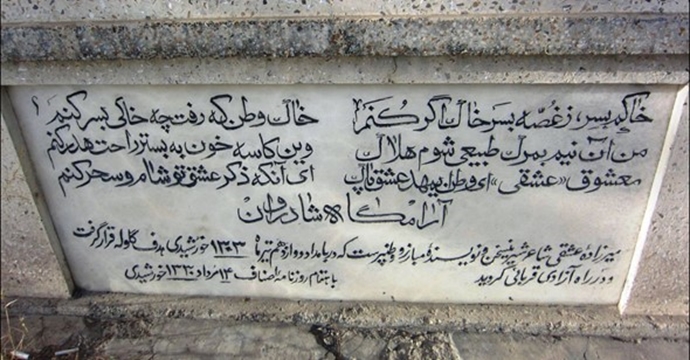 خاکم بسر، ز غصّه بسر خاک اگر کُنم خاک وطن که رفت چه خاکی بسر کنم
من آن نیم بمرگ طبیعی شوم هلاک وین کاسه خون به بستر راحت هدر کنم
معشوق «عشقی» ای وطن ای مهد عشق پاک ای آنکه ذکر عشق تو شام و سحر کنم
آرامگاه شادروان
میرزاده عشقی شاعر شیرین سخن و نویسنده مبارز و وطنپرست که در بامداد دوازدهم تیرماه ۱۳۰۳ خورشیدی هدف گلوله قرار گرفت
و در راه آزادی قربانی گردید باهتمام روزنامه اصناف ۱۴ مرداد خورشیدی